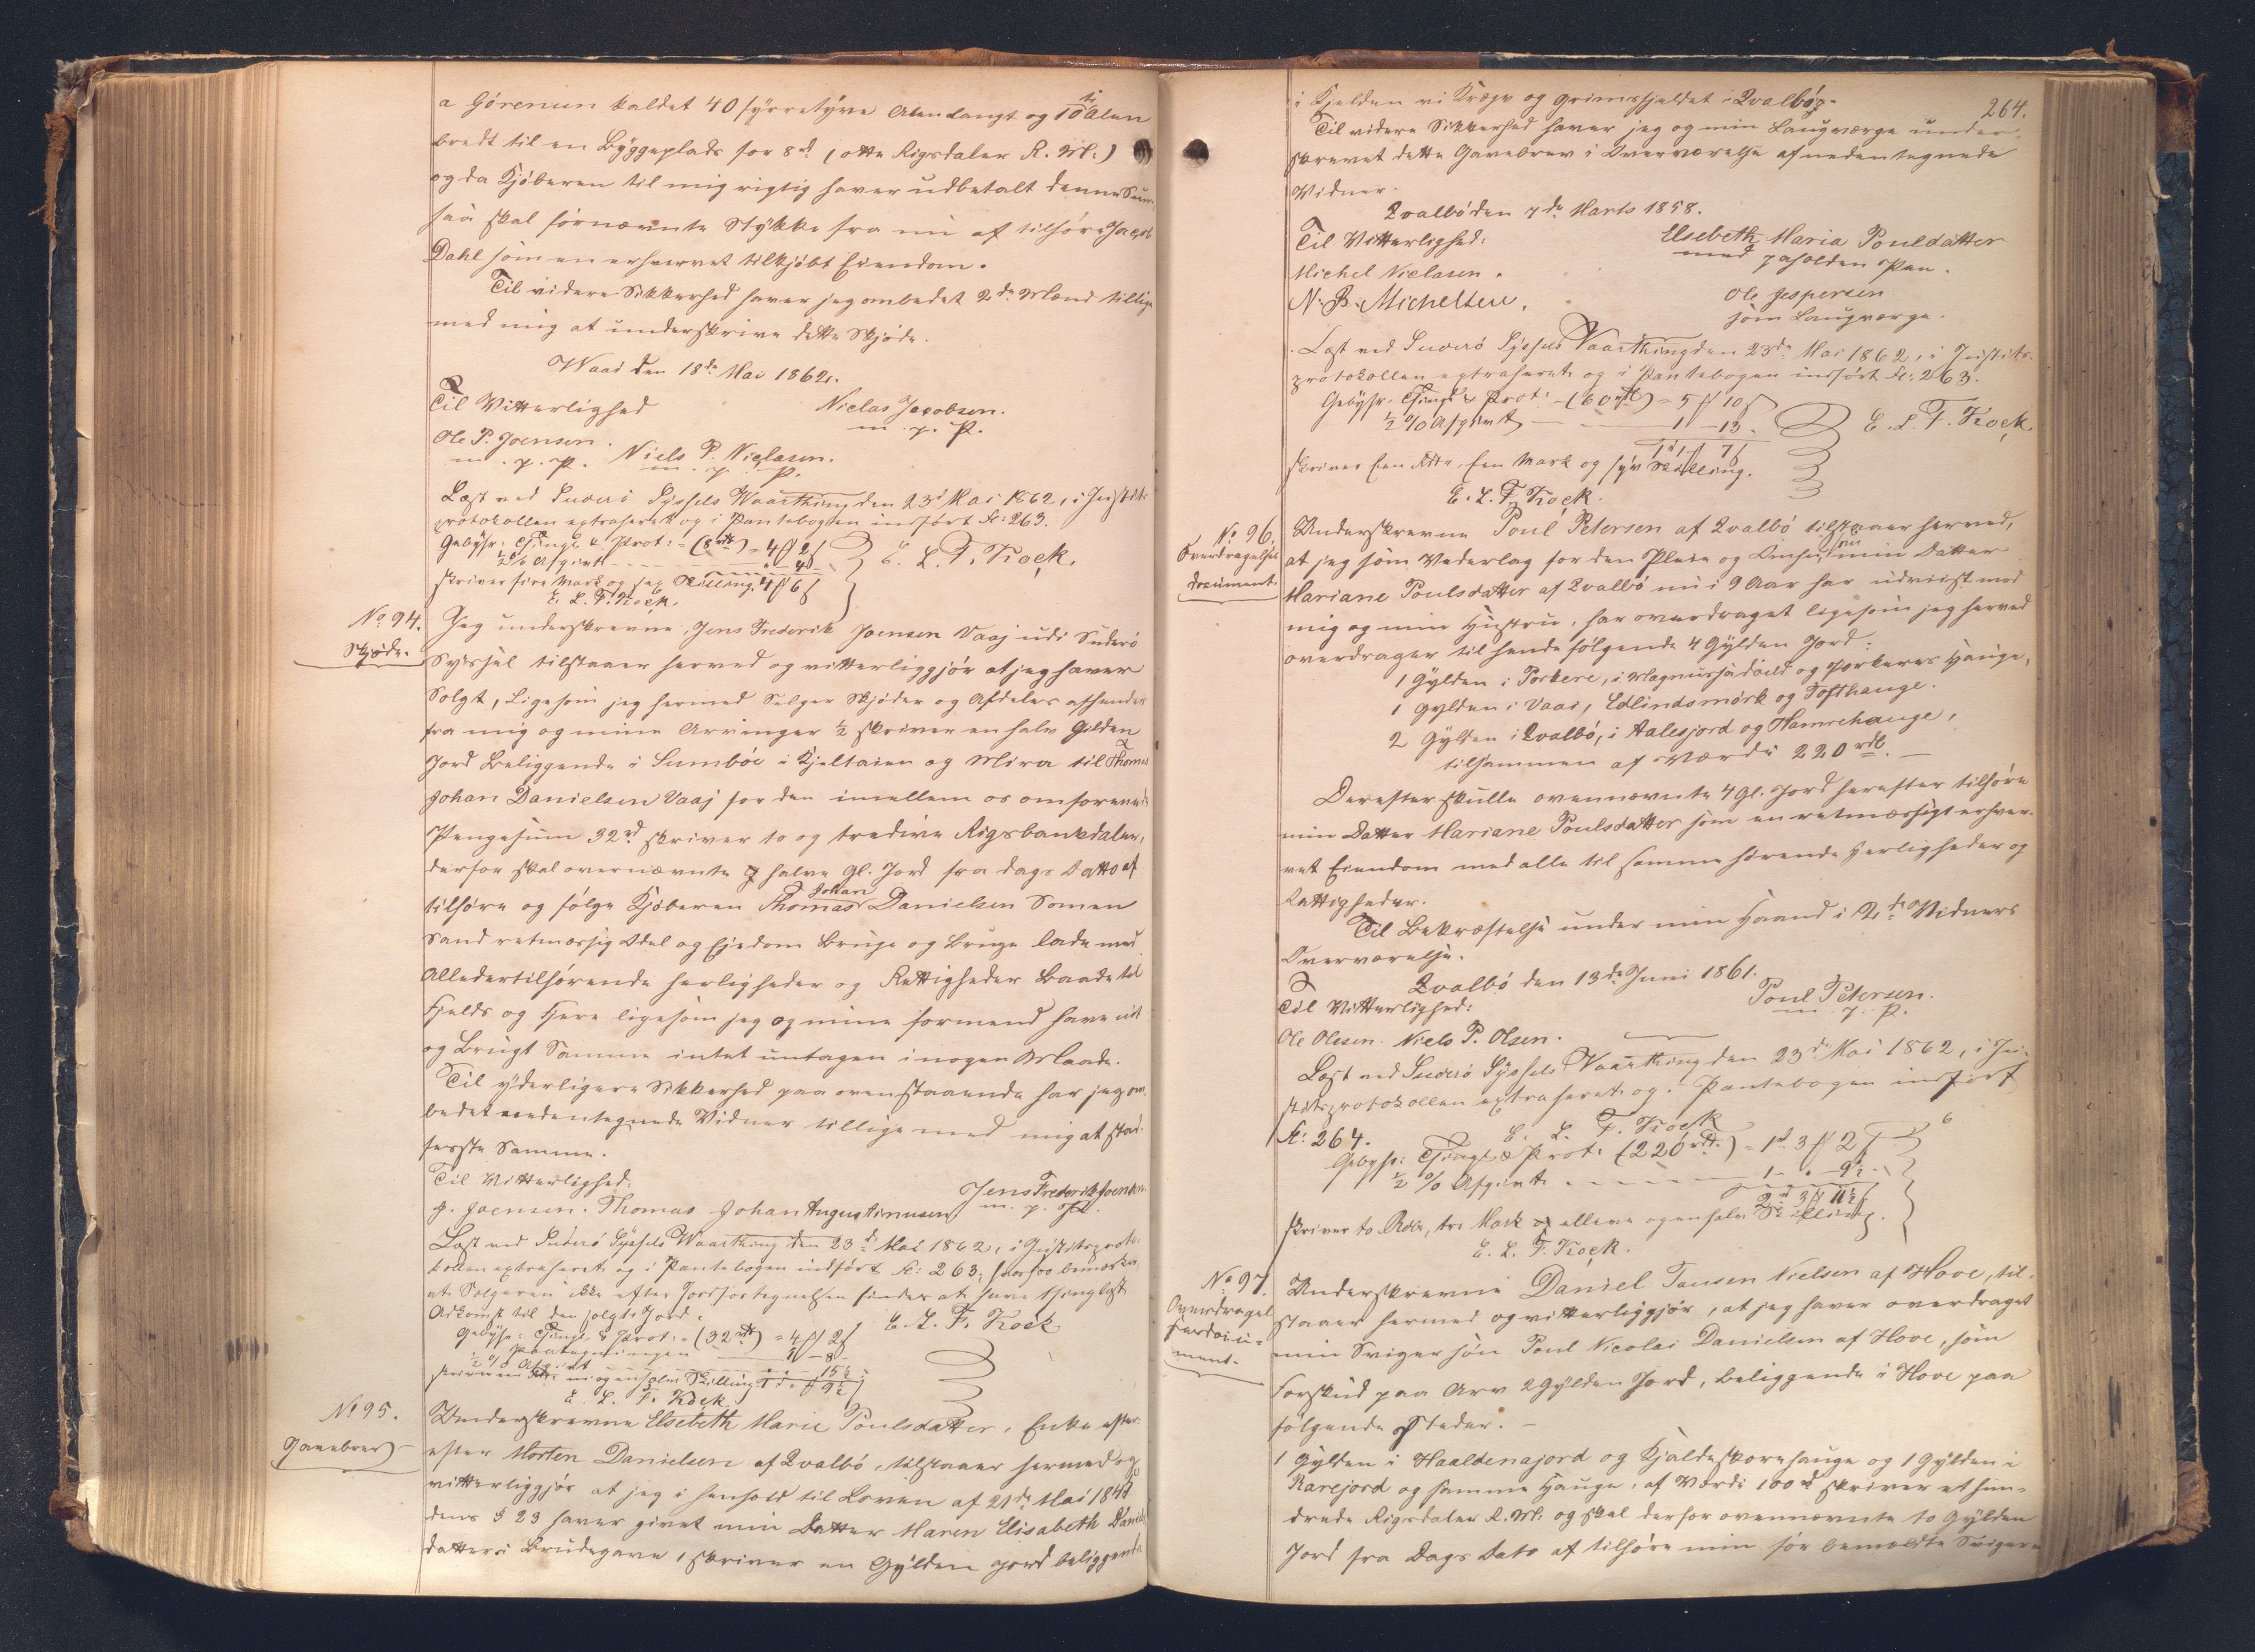 a Görenum kaldet 40 fyrretyve Alen Langt og 10 ti Alen
bredt til en Byggeplads for 8 rd (otte Rigsdaler R. M.)
og da Kjöberen til mig rigtig haver udbetalt denne Sum,
saa skal fornævnte Stykke fra nu af tilhöre Jacob
Dahl som en erhvervet tilkjöbt Eiendom.
Til videre Sikkerhed haver jeg ombedet 2de Mænd tillige
med mig at underskrive dette Skjöde.
Waai den 18de Mai 1862.
Til Vitterlighed
Niclas Jacobsen.
m. p. P.
Ole P. Joensen.
m. p. P.
Niels P. Niclasen.
m. p. P.
Læst ved Suderö Syssels Vaarthing den 23d Mai 1862, i Justits
protokollen extraheret og i Pantebogen indfört Fol: 263.
Gebyhr: Thingl. & Prot: = (8 rd) = 4 M 2 s
½ % Afgivt 4
skriver fire Mark og sex Skilling. 4 M 6 s
E. L. F. Kock.
E. L. F. Kock.
No 94.
Skjöde.
Jeg underskrevne, Jens Frederik Joensen Vaaj udi Suderö
Syssel tilstaaer herved og vitterliggjör at jeg haver
Solgt, Ligesom jeg hermed Selger Skjöder og Afdeler afhender
fra mig og mine Arvinger ½ skriver en halv Gilden
Jord Beliggende i Sumböe i Kjeltaien og Mira til Thomas
Johan Danielsen Vaaj for den imellem os omforenede
Pengesum 32 rd skriver to og tredive Rigsbankdaler,
derfor skal overnævnte halve Gl. Jord fra dags Datto af
tilhöre og fölge Kjöberen Thomas Johan Danielsen Som en
Sand retmæssig Odel og Ejedom bruge og bruge lade med
Alledertilhörende herligheder og Rettigheder Baade til
Fjelds og Fjere ligesom jeg og mine formend have eiet
og Brugt Samme intet untagen i nogen Maade.
Til yderligere Sikkerhed paa ovenstaaende har jeg om
bedet nedentegnede Vidner tillige med mig at stad
feste Samme.
Til Vitterlighed:
Jens Frederik Joensen
m. p. P.
J. Joensen. Thomas Johan Augustinussen
Læst ved Suderö Syssels Waarthing den 23d Mai 1862, i Justitsproto
kollen extraheret og i Pantebogen indfört Fol: 263, hvorhos bemærkes,
at Sælgeren ikke efter Jordfortegnelsen findes at have thinglæst
Adkomst til den solgte Jord.
E. L. F. Kock
Gebyhr: Thingl. & Prot: = (32 rd) = 4 M 2 s
Paategningen 1 – 8 –
½ % Afgivt 15½
skriver en Rdlr ni og en halv Skilling 1 rd 9½
E. L. F. Kock
No 95.
Gavebrev
Underskrevne Elsebeth Marie Poulsdatter, Enke efter
efter Morten Danielsen af Qvalbö, tilstaaer hermed og
vitterliggjör at jeg i henhold til Loven af 21de Mai 184
dens § 23 haver givet min Datter Maren Elisabeth Daniels
datter i Brudegave 1 skriver en Gylden Jord beliggende
264.
i Kjelden vi Kræge og Grimsfjeldet i Qvalbö.
Til videre Sikkerhed haver jeg og min Laugværge under-
skrevet dette Gavebrev i Overværelse af nedentegnede
Vidner.
Qvalbö den 7de Marts 1858.
Til Vitterlighed:
Elsebeth Maria Pouldatter
med paaholden Pen.
Michel Niclasen.
N. B. Michelsen.
Ole Jespersen
som Laugværge.
Læst ved Suderö Syssels Vaarthing den 23de Mai 1862, i Justits-
protokollen extraheret og i Pantebogen indfört Fol: 263.
Gebyhr. Thingl & Prot: – (60 rd) = 5 M 10 s
½ % Afgivt 1 – 13 –
1 rd 1 M 7 s
E. L. F. Kock
skriver Een Rdlr, Een Mark og syv Skilling.
E. L. F. Kock.
No 96.
Overdragelses
document.
Underskrevne Poul Petersen af Qvalbö tilstaaer herved,
at jeg som Vederlag for den Pleie og Omhu, min Datter
Mariane Poulsdatter af Qvalbö nu i 9 Aar har udviist mod
mig og min Hustru, har overdraget ligesom jeg herved
overdrager til hende fölgende 4 Gylden Jord:
1 Gylden i Porkere, i Magnussa deild og Porkeres Hauge,
1 Gylden i Vaai, Edlindsmörk og Tofthauge.
2 Gylden i Qvalbö, i Aalesjord og Hamrehauge,
tilsammen af Værdi 220 rdl. –
Derefter skulle ovennævnte 4 Gl. Jord herefter tilhöre
min Datter Mariane Poulsdatter som en retmæssigt erhver-
vet Eiendom med alle til samme hörende Herligheder og
Rettigheder.
Til Bekræftelse under min Haand i 2de Vidners
Overværelse.
Qvalbö den 13de Juni 1861.
Til Vitterlighed:
Poul Petersen.
m. p. P.
Ole Olesen. Niels P. Olsen.
Læst ved Suderö Syssels Vaarthing den 23de Mai 1862, i Ju-
stitsprotokollen extraheret og i Pantebogen indfört
Fol: 264.
E. L. F. Kock
Gebyhr: Thingl. & Prot: (220 rd.) = 1 rd 3 M 2 s
½ % Afgivt 1 – " – 9½
2 rd 3 M 11½ s
skriver to Rdlr, tre Mark og elleve og en halv Skilling.
E. L. F. Kock.
No 97.
Overdragel
sesdocu-
ment.
Underskrevne Daniel Tausen Nielsen af Hove, til-
staaer hermed og vitterliggjör, at jeg haver overdraget
min Svigersön Poul Nicolai Danielsen af Hove, som
Forskud paa Arv 2 Gylden Jord, beliggende i Hove paa
fölgende Steder. –
1 Gylden i Haaldenajord og Kjaldeskorehauge og 1 Gylden i
Rarejord og samme Hauge, af Værdi 100 rd skriver et hun-
drede Rigsdaler R. M. og skal derfor ovennævnte to Gylden
Jord fra Dags Dato af tilhöre min för bemeldte Sviger-